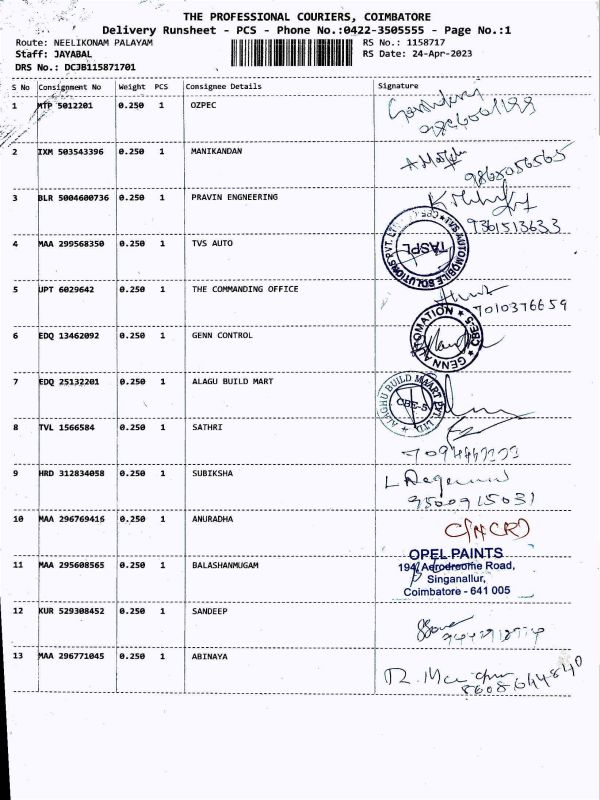 THE PROFESSIONAL COURIERS, COIMBATORE
Delivery Runsheet - PCS - Phone No.:0422-3505555 - Page No.:1
Route: NEELIKONAM PALAYAM RS No.: 1158717
Staff: JAYABAL RS Date: 24-Apr-2023
DRS No.: DCJB115871701
S No Consignment No Weight PCS Consignee Details Signature
1 MTP 5012201 0.250 1 OZPEC
2 IXM 503543396 0.250 1 MANIKANDAN
9865056565
3 BLR 5004600736 0.250 1 PRAVIN ENGNEERING
9361513633
4 MAA 299568350 0.250 1 TVS AUTO
TVS AUTOMOBILE SOLUTIONS PVT. LTD. TASPL
5 UPT 6029642 0.250 1 THE COMMANDING OFFICE
7010376659
6 EDQ 13462092 0.250 1 GENN CONTROL
GENN AUTOMATION CBE-5
7 EDQ 25132201 0.250 1 ALAGU BUILD MART
ALAGHU BUILD MAART PVT. LTD. CBE-5
8 TVL 1566584 0.250 1 SATHRI
9 HRD 312834058 0.250 1 SUBIKSHA
9500915031
10 MAA 296769416 0.250 1 ANURADHA
11 MAA 295608565 0.250 1 BALASHANMUGAM
OPEL PAINTS
194, Aerodreome Road,
Singanallur,
Coimbatore - 641 005
12 KUR 529308452 0.250 1 SANDEEP
13 MAA 296771045 0.250 1 ABINAYA
8608644840